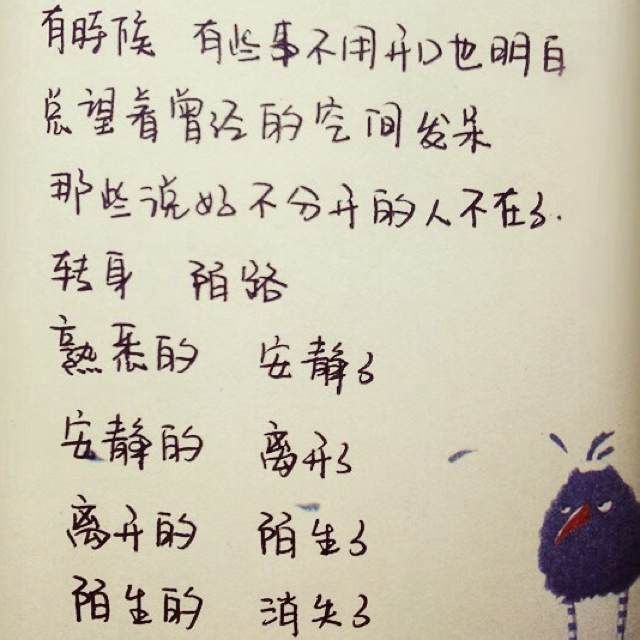 有時候 有些事不用开口也明白
总望着曾经的空间发呆
那些说好不分开的人不在了.
转身 陌路
熟悉的 安静了
安静的 离开了
离开的 陌生了
陌生的 消失了